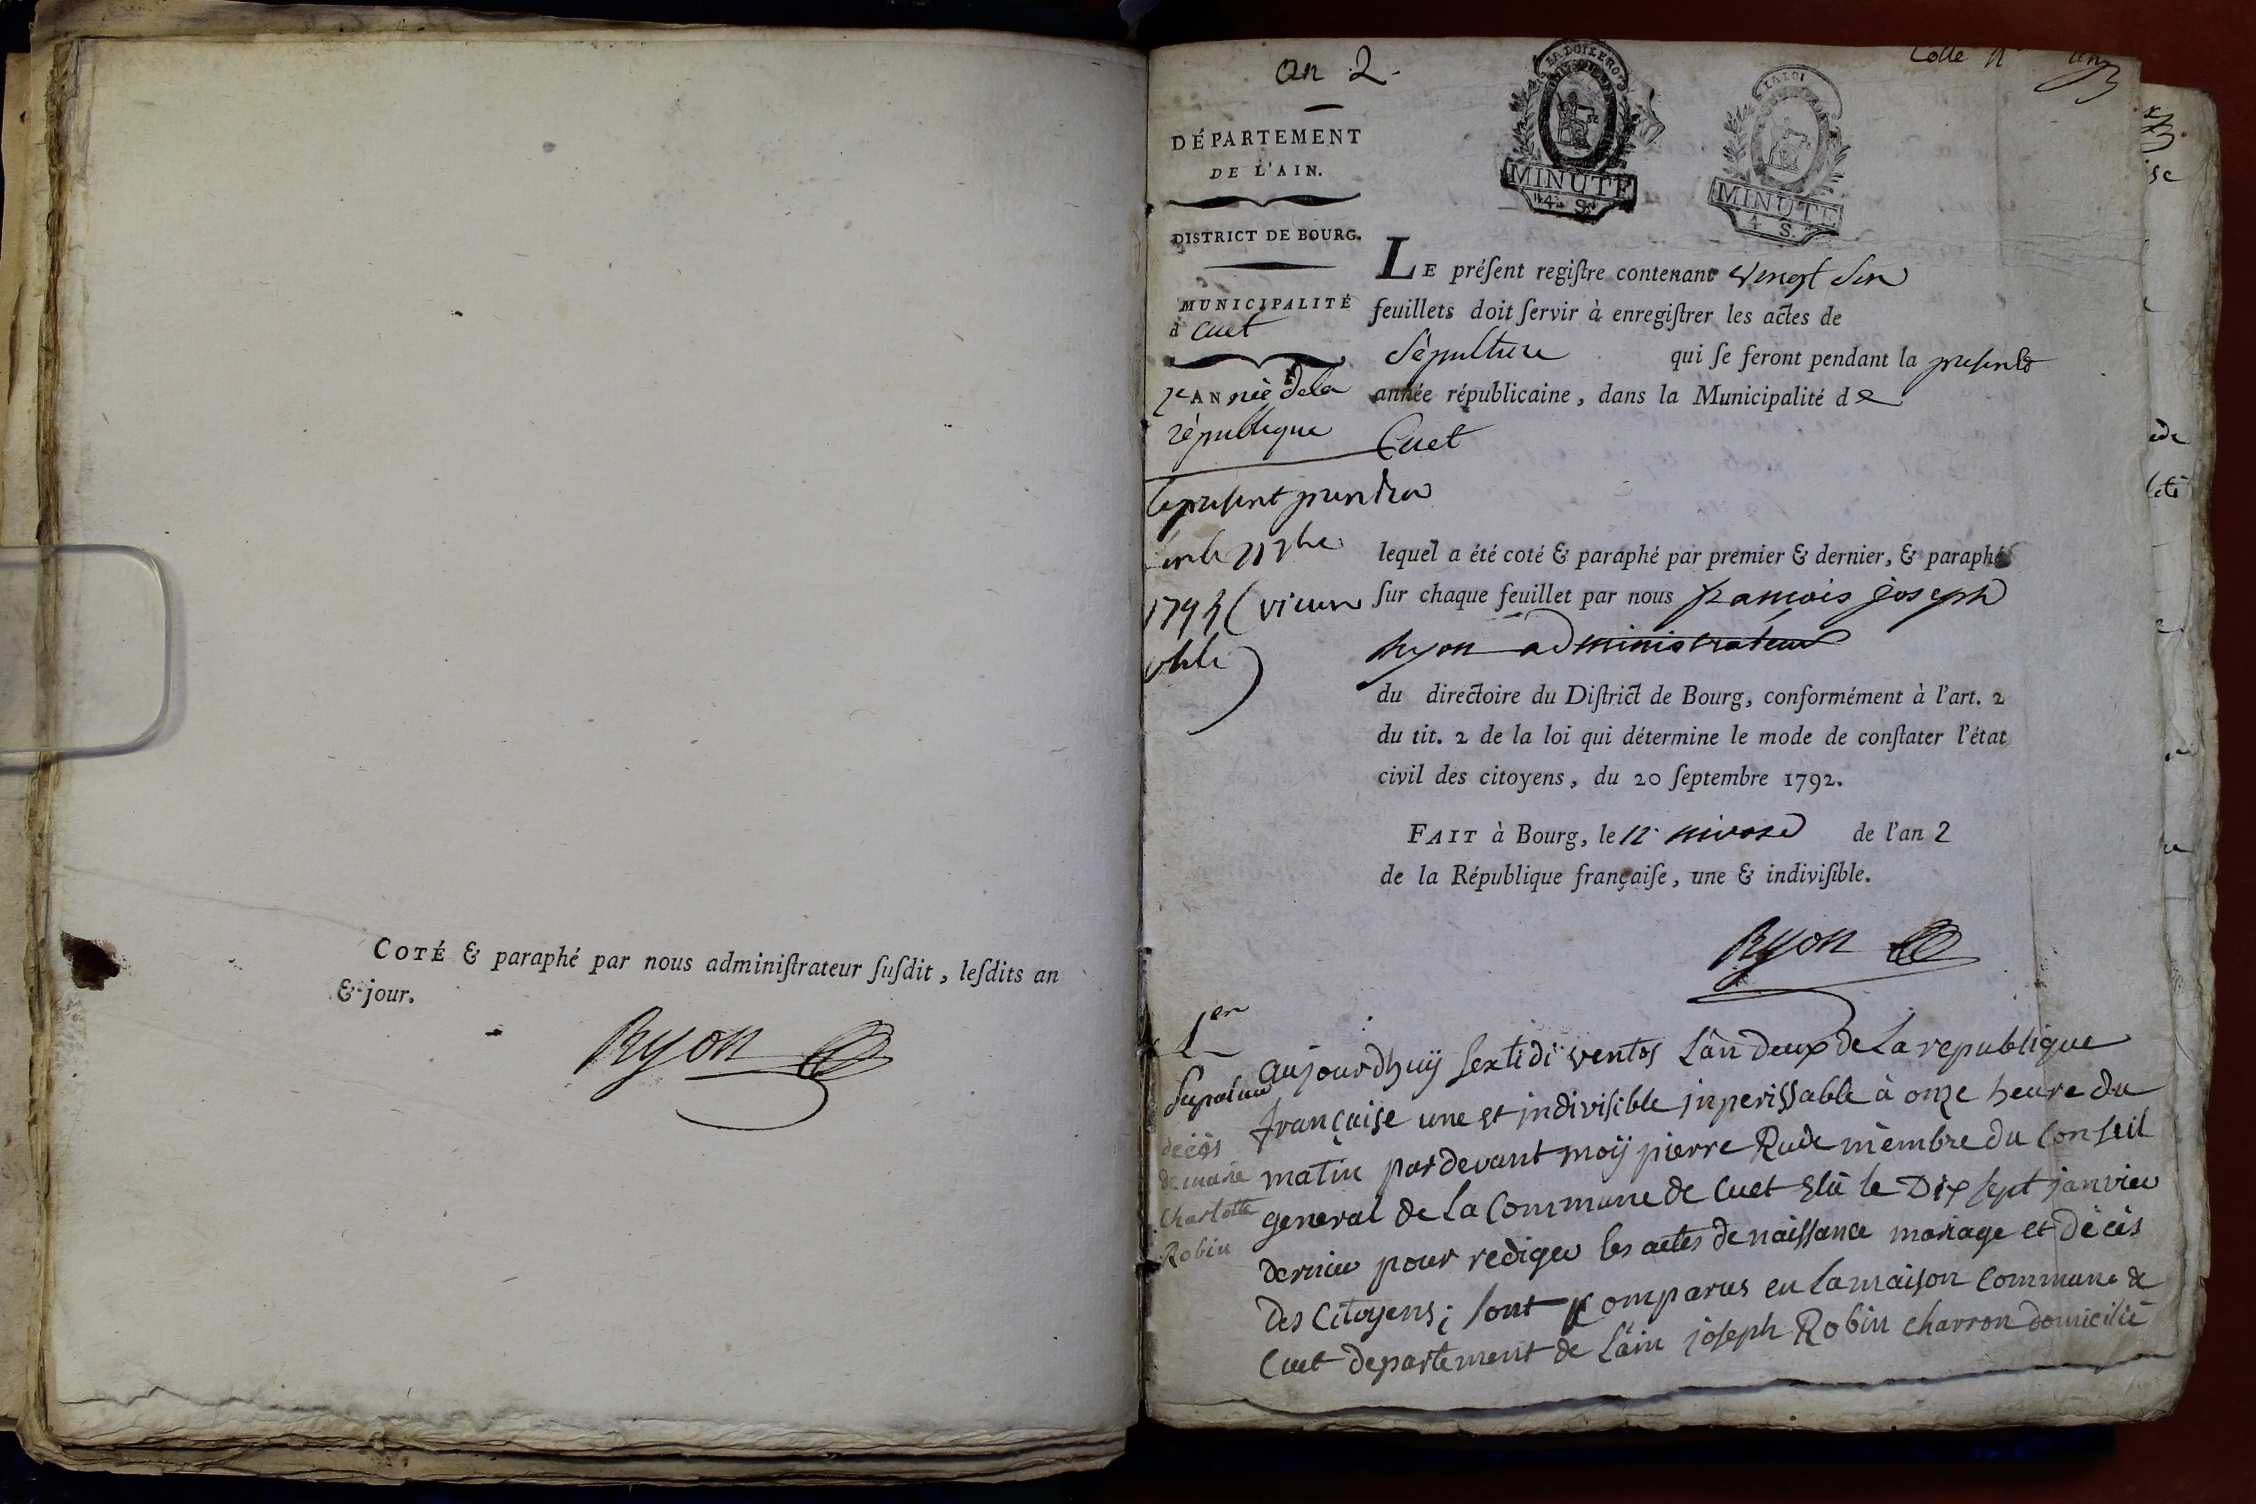 COTÉ & paraphé par nous adminiſtrateur ſuſdit, leſdits an
& jour.
Ryon
an 2.
Cotte
un
DÉPARTEMENT
DE L'AIN.
DISTRICT DE BOURG.
MUNICIPALITÉ
d cuet
2e ANnée de la
république
le present prendra
1794 (vieux
stile)
LA LOI LE ROI
MINUTE
4 S.
LA LOI
MINUTE
4 S.
LE préſent regiſtre contenant vingt six
feuillets doit ſervir à enregiſtrer les actes de
sépulture qui ſe feront pendant la presente
année républicaine, dans la Municipalité de
Cuet
lequel a été coté & paraphé par premier & dernier, & paraphé
ſur chaque feuillet par nous françois joseph
Ryon administrateur
du directoire du Diſtrict de Bourg, conformément à l'art. 2
du tit. 2 de la loi qui détermine le mode de conſtater l'état
civil des citoyens, du 20 ſeptembre 1792.
FAIT à Bourg, le 12 nivose de l'an 2
de la République françaiſe, une & indiviſible.
Ryon
1er
Sepulture
décés
de marie
Charlotte
Robin
aujourdhuy sextidi ventos L'an deux de La republique
française une et jndivisible jnperissable à onze heure du
matin pardevant moÿ pierre Rude membre du Conseil
general de La Commune de Cuet Elù le Dix sept janvier
dernier pour rediger les actes de naissance mariage et décès
des Citoyens; sont comparus en la maison commune de
Cuet departement de L'ain joseph Robin charron domicilié